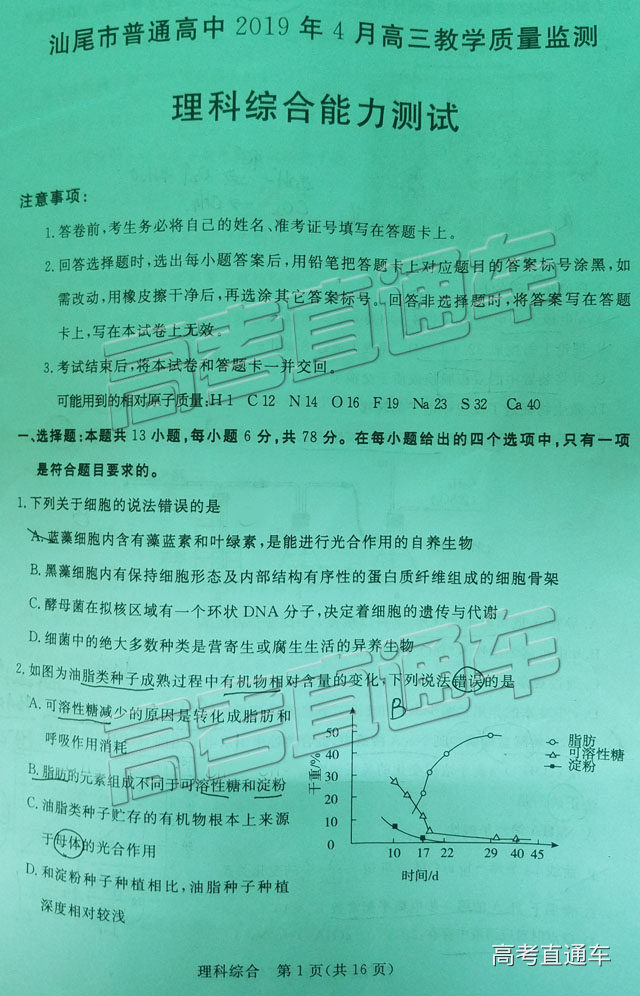 汕尾市普通高中 2019 年 4 月高三教学质量监测
理科综合能力测试
注意事项:
1.答卷前,考生务必将自己的姓名、准考证号填写在答题卡上。
2.回答选择题时,选出每小题答案后,用铅笔把答题卡上对应题目的答案标号涂黑,如
需改动,用橡皮擦干净后,再选涂其它答案标号。回答非选择题时,将答案写在答题
卡上,写在本试卷上无效。
3.考试结束后,将本试卷和答题卡一并交回。
可能用到的相对原子质量:H 1 C 12 N 14 O 16 F 19 Na 23 S 32 Ca 40
一、选择题:本题共 13 小题,每小题 6 分,共 78 分。在每小题给出的四个选项中,只有一项
是符合题目要求的。
1.下列关于细胞的说法错误的是
A.蓝藻细胞内含有藻蓝素和叶绿素,是能进行光合作用的自养生物
B.黑藻细胞内有保持细胞形态及内部结构有序性的蛋白质纤维组成的细胞骨架
C.酵母菌在拟核区域有一个环状 DNA 分子,决定着细胞的遗传与代谢
D.细菌中的绝大多数种类是营寄生或腐生生活的异养生物
2.如图为油脂类种子成熟过程中有机物相对含量的变化,下列说法错误的是
A.可溶性糖减少的原因是转化成脂肪和
呼吸作用消耗
B.脂肪的元素组成不同于可溶性糖和淀粉
C.油脂类种子贮存的有机物根本上来源
于母体的光合作用
D.和淀粉种子种植相比,油脂种子种植
深度相对较浅
B
干重/%
50
40
30
20
10
0
10 17 22 29 40 45
时间/d
脂肪
可溶性糖
淀粉
理科综合 第 1 页(共 16 页)
高考直通车
高考直通车
高考直通车